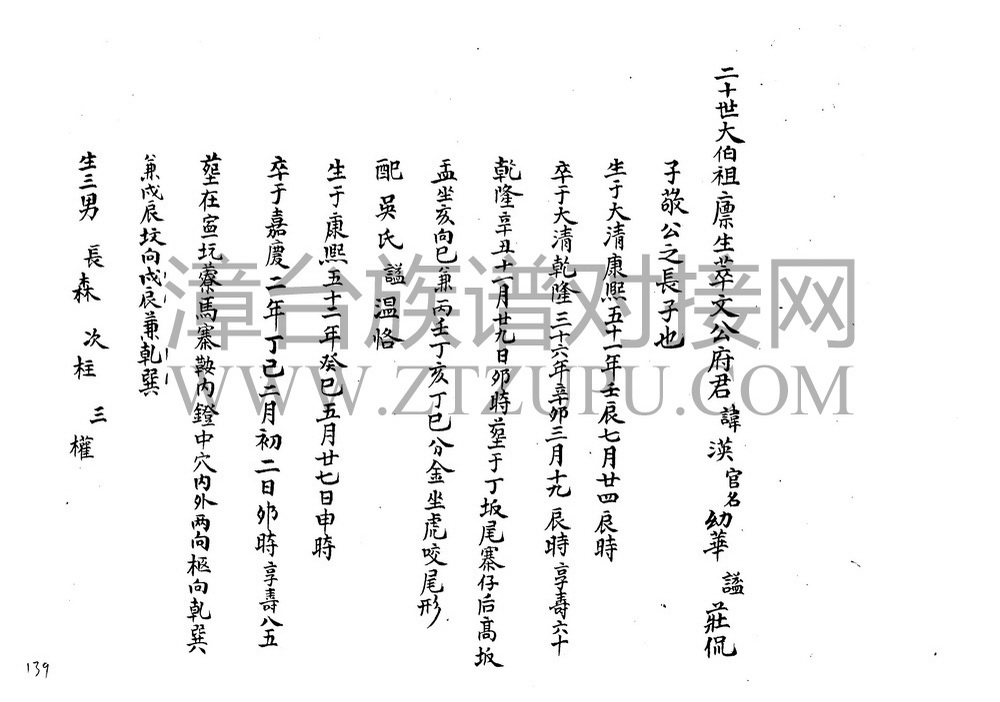 二十世大伯祖廩生萃文公府君 諱漢 官名幼華 謚莊侃
子敬公之長子也
生于大清康熙五十一年壬辰七月廿四辰時
卒于大清乾隆三十六年辛卯三月十九辰時享壽六十
乾隆辛丑十一月廿九日卯時塟于丁坂尾寨仔后高坂
盂坐亥向巳兼丙壬丁亥丁巳分金坐虎咬尾形
配吳氏 謚温恪
生于康熙五十二年癸巳五月廿七日申時
卒于嘉慶二年丁巳二月初二日卯時享壽八五
塟在宣坑藔馬寨鞍内鐙中穴内外两向柩向乹巽
兼戍辰坟向戍辰兼乹巽
生三男 長森 次柱 三權
139
漳台族谱对接网
WWW.ZTZUPU.COM